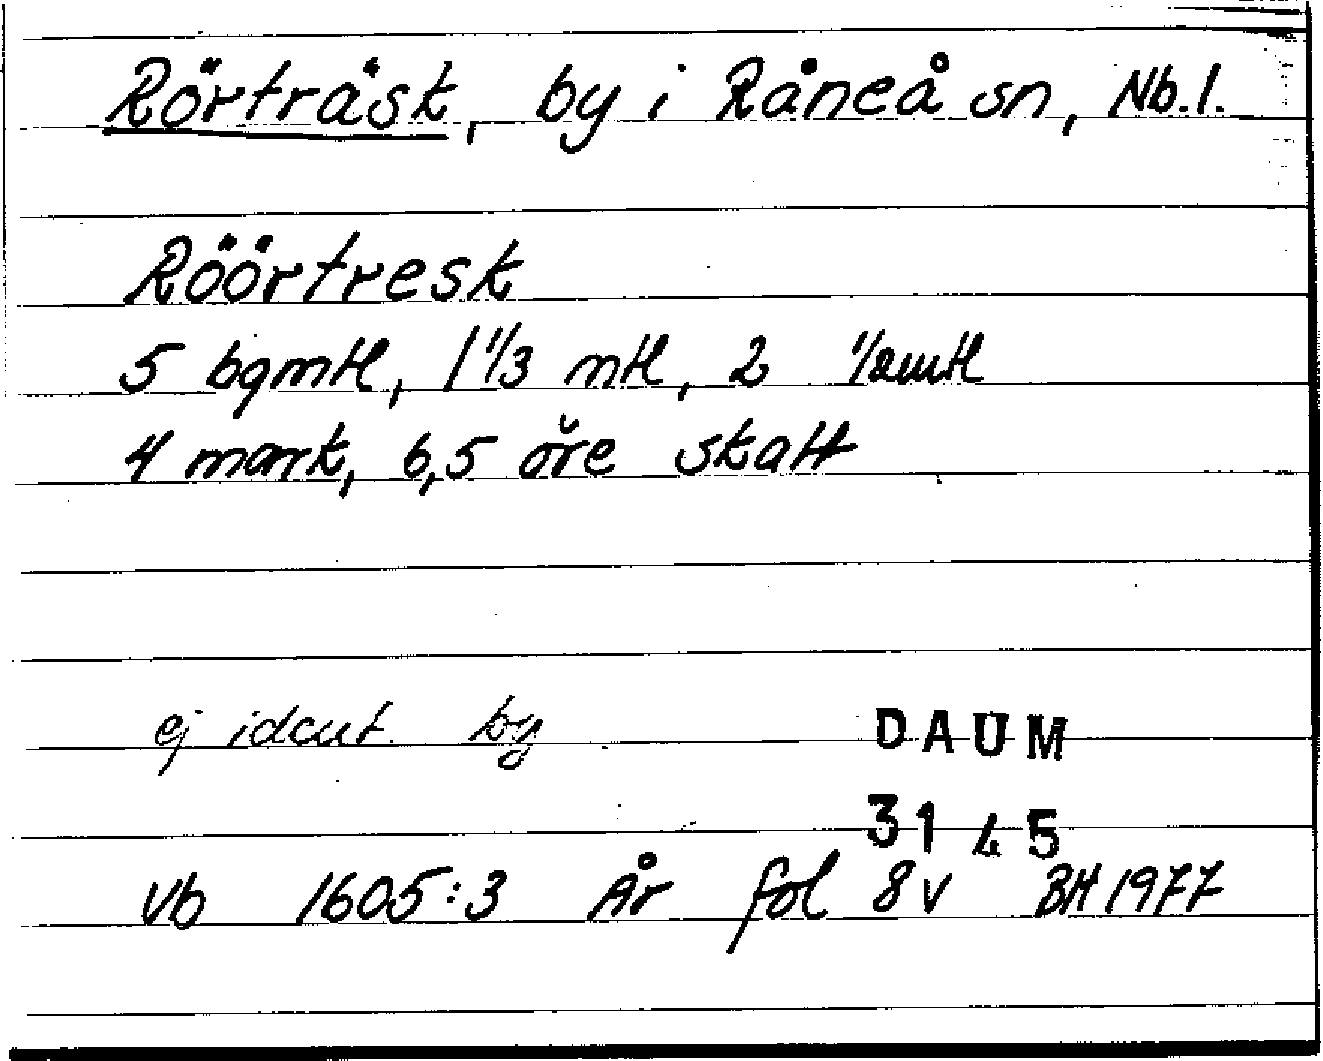 Rörträsk, by i Råneå sn, Nb.l.
Röörtresk
5 bgmtl, 1 1/3 mtl, 2 1/2mtl
4 mark, 6,5 öre skatt
ej ident. by
DAUM
3145
Vb 1605:3 År fol 8v BH 1977